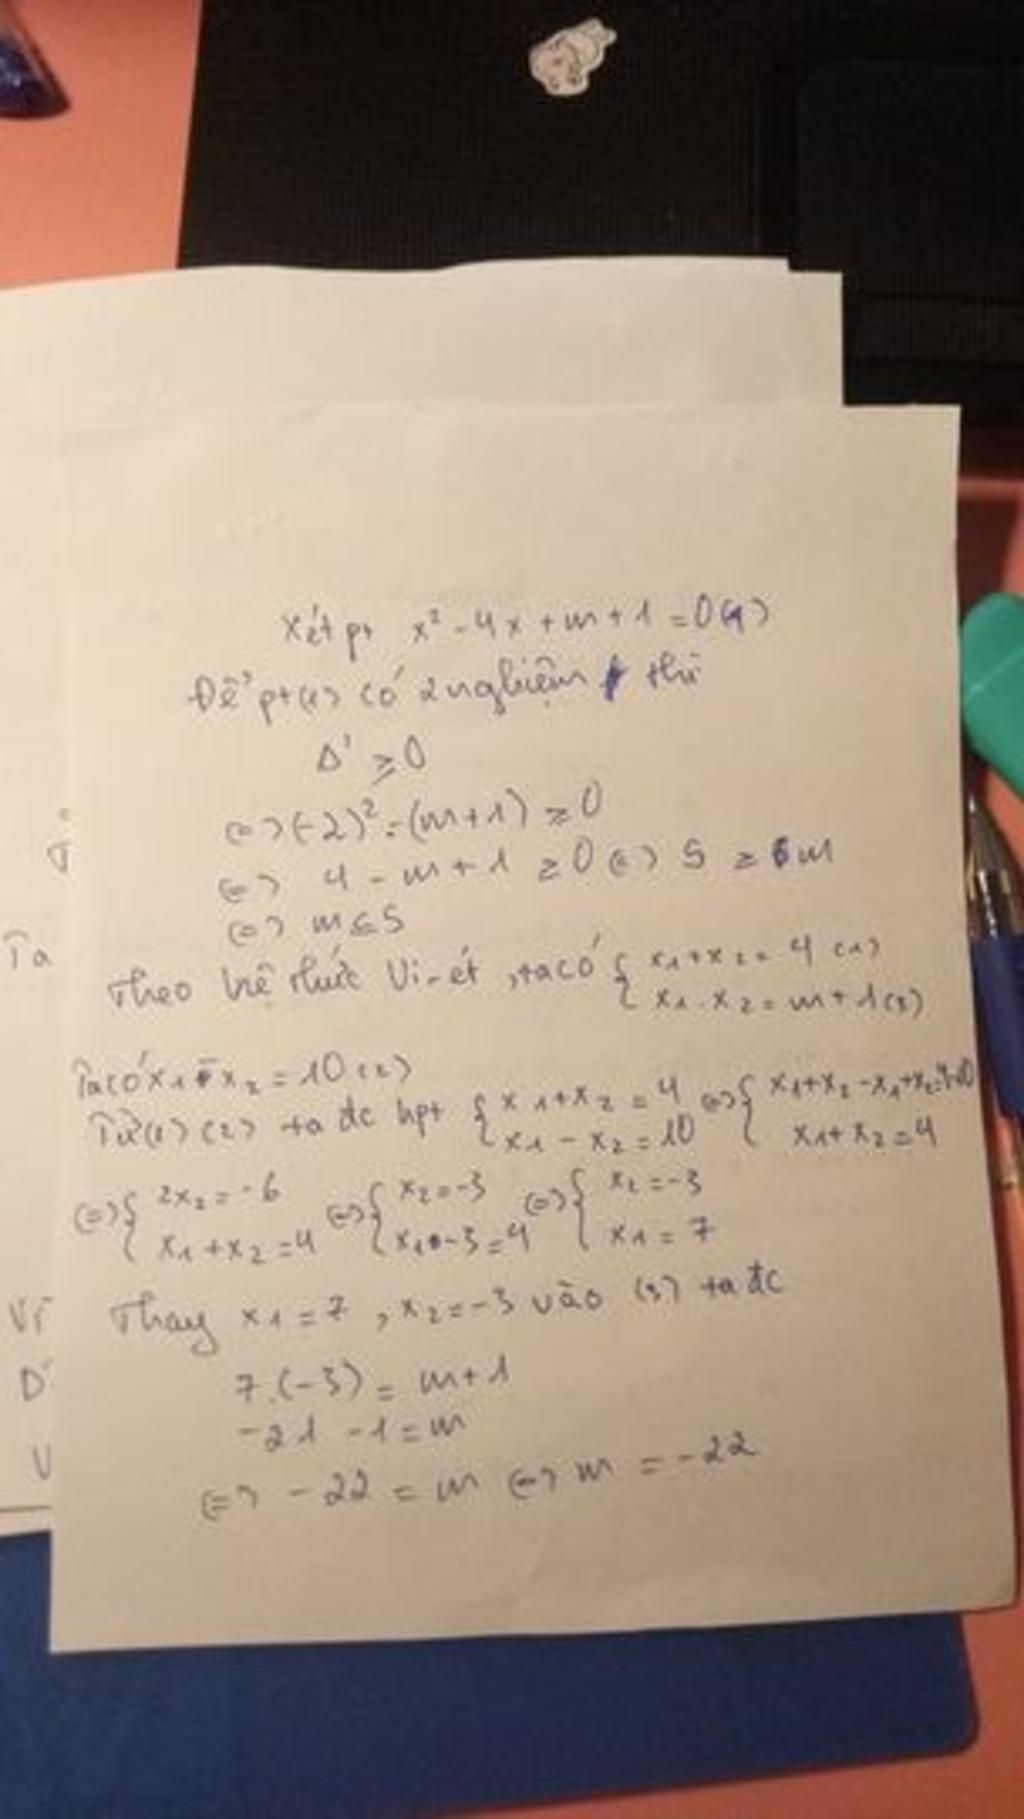 Xét pt x² - 4x + m + 1 = 0 (1)
Để pt (1) có 2 nghiệm thì
Δ' ≥ 0
<=> (-2)² - (m+1) ≥ 0
<=> 4 - m + 1 ≥ 0 <=> 5 ≥ m
<=> m ≤ 5
Theo hệ thức Vi-ét, ta có { x1 + x2 = 4 (1)
x1 . x2 = m + 1 (3)
Ta có x1 - x2 = 10 (2)
Từ (1) (2) ta đc hpt { x1 + x2 = 4 <=> { x1 + x2 - x1 + x2 = 4-10
x1 - x2 = 10 x1 + x2 = 4
<=> { 2x2 = -6 <=> { x2 = -3 <=> { x2 = -3
x1 + x2 = 4 x1 - 3 = 4 x1 = 7
Thay x1 = 7, x2 = -3 vào (3) ta đc
7.(-3) = m + 1
-21 - 1 = m
<=> -22 = m <=> m = -22
Ta
Vì